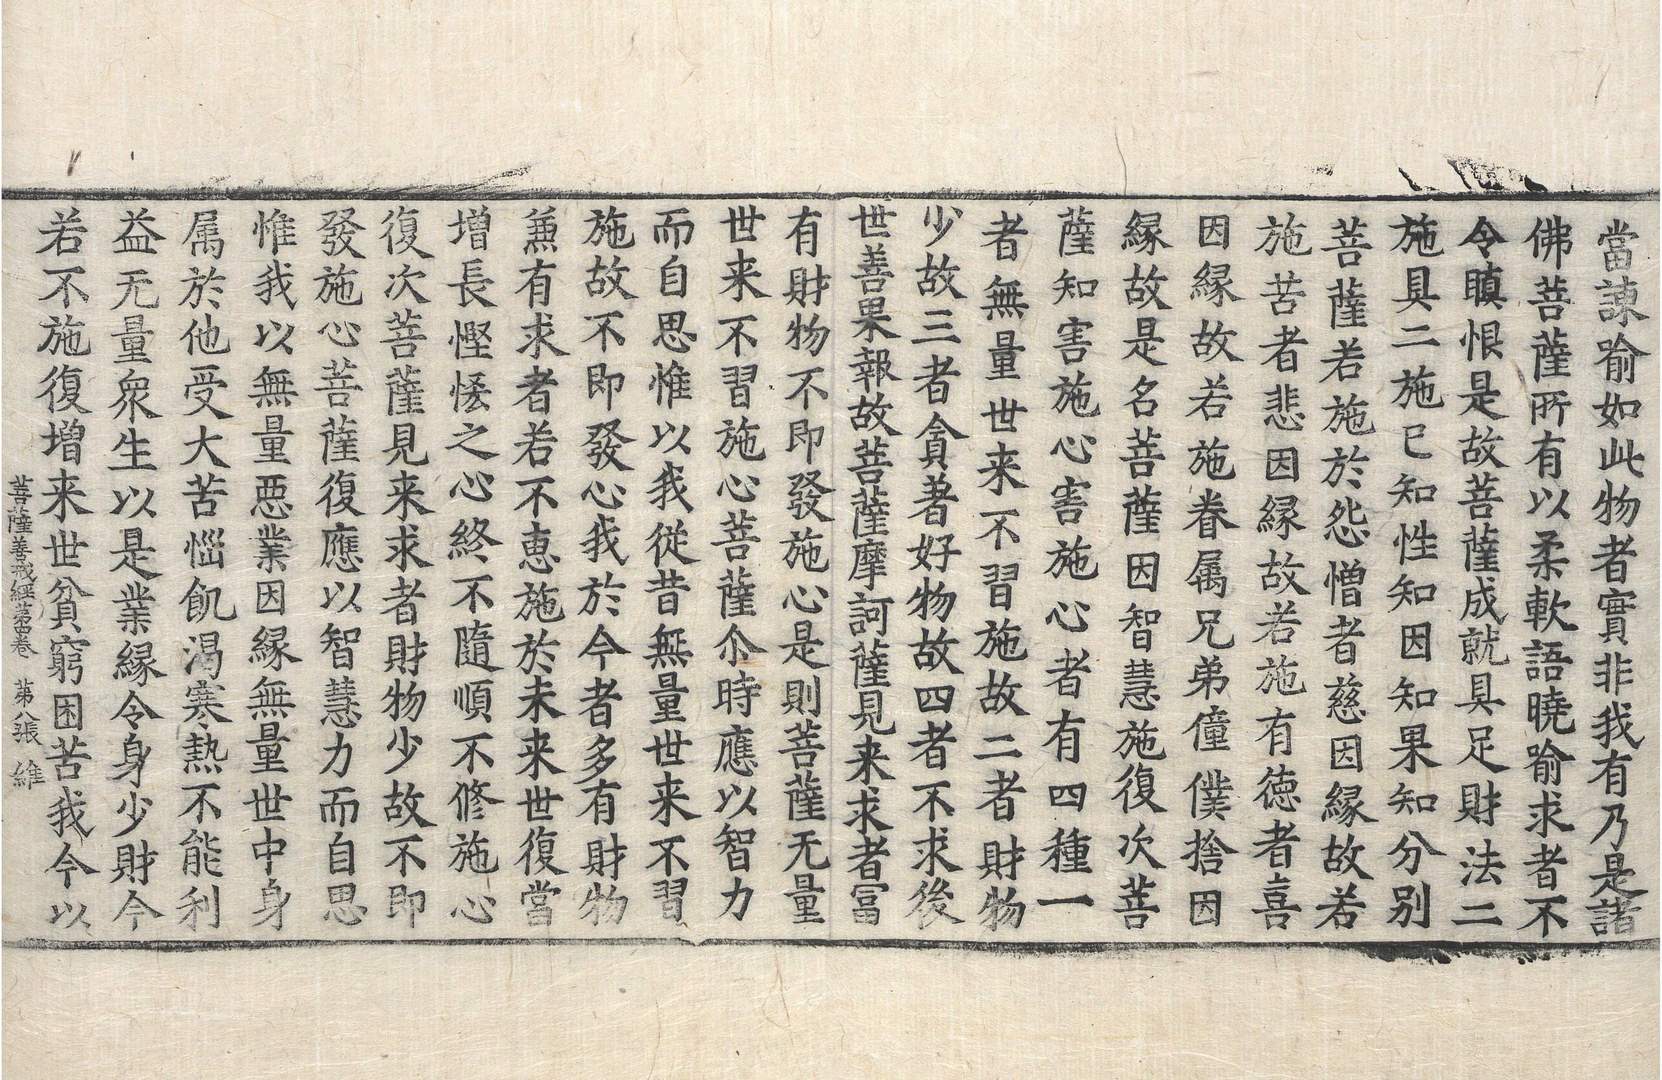 當諫喻如此物者實非我有乃是諸
佛菩薩所有以柔軟語曉喻求者不
令瞋恨是故菩薩成就具足財法二
施具二施已知性知因知果知分别
菩薩若施於怨憎者慈因縁故若
施苦者悲因縁故若施有徳者喜
因縁故若施眷属兄弟僮僕捨因
縁故是名菩薩因智慧施復次菩
薩知害施心害施心者有四種一
者無量世来不習施故二者財物
少故三者貪著好物故四者不求後
世善果報故菩薩摩訶薩見来求者冨
有財物不即發施心是則菩薩无量
世来不習施心菩薩尒時應以智力
而自思惟以我従昔無量世来不習
施故不即發心我於今者多有財物
兼有求者若不恵施於未来世復當
増長慳悋之心終不隨順不修施心
復次菩薩見来求者財物少故不即
發施心菩薩復應以智慧力而自思
惟我以無量惡業因縁無量世中身
属於他受大苦惱飢渇寒熱不能利
益无量衆生以是業縁令身少財今
若不施復増来世貧窮困苦我今以
菩薩善戒經第四卷 第八張 維